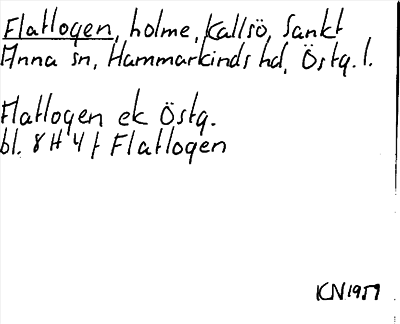 Flatlogen, holme, Kallsö, Sankt
Anna sn, Hammarkinds hd, Östg. l.
Flatlogen ek Östg.
bl. 8 H 4 f Flatlogen
KN 1959